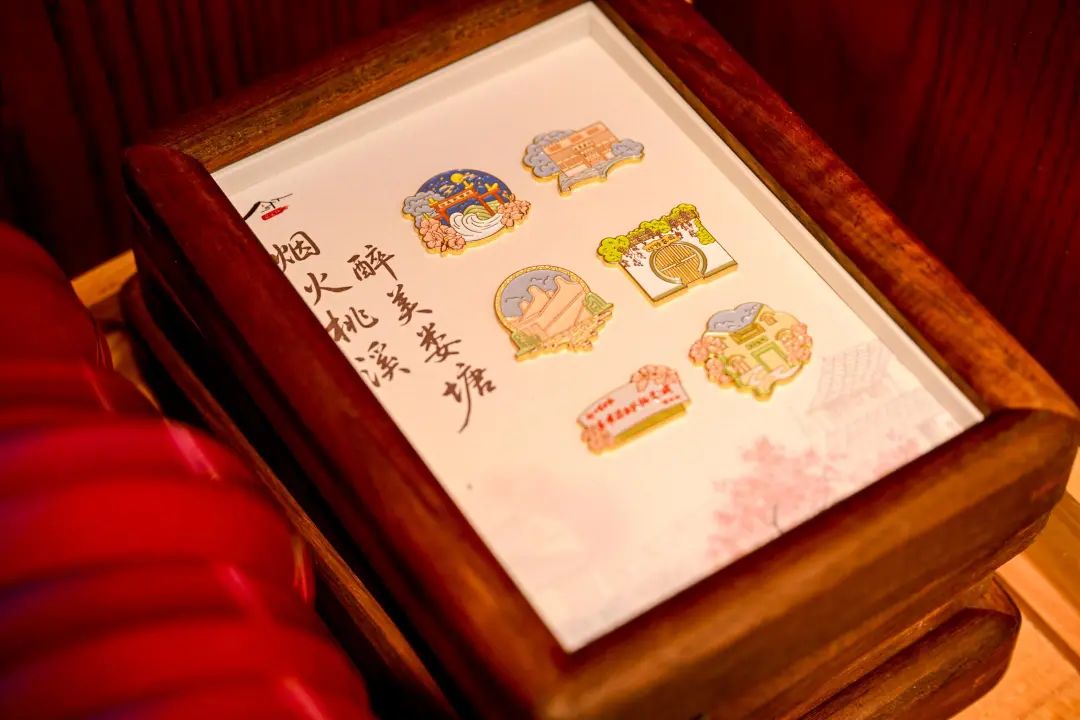 烟火桃溪
醉美娄塘